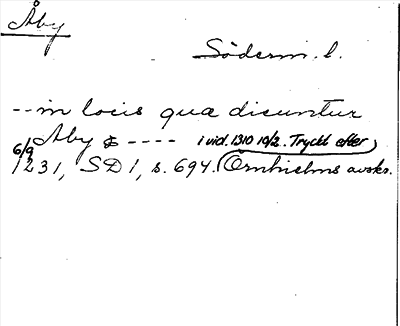 Åby
Söderm. l.
-- in locis quæ dicuntur
Aby & ---- i vid. 1310 10/2. Tryckt efter
6/9 1231, SD 1, s. 694. Örnhielms avskr.